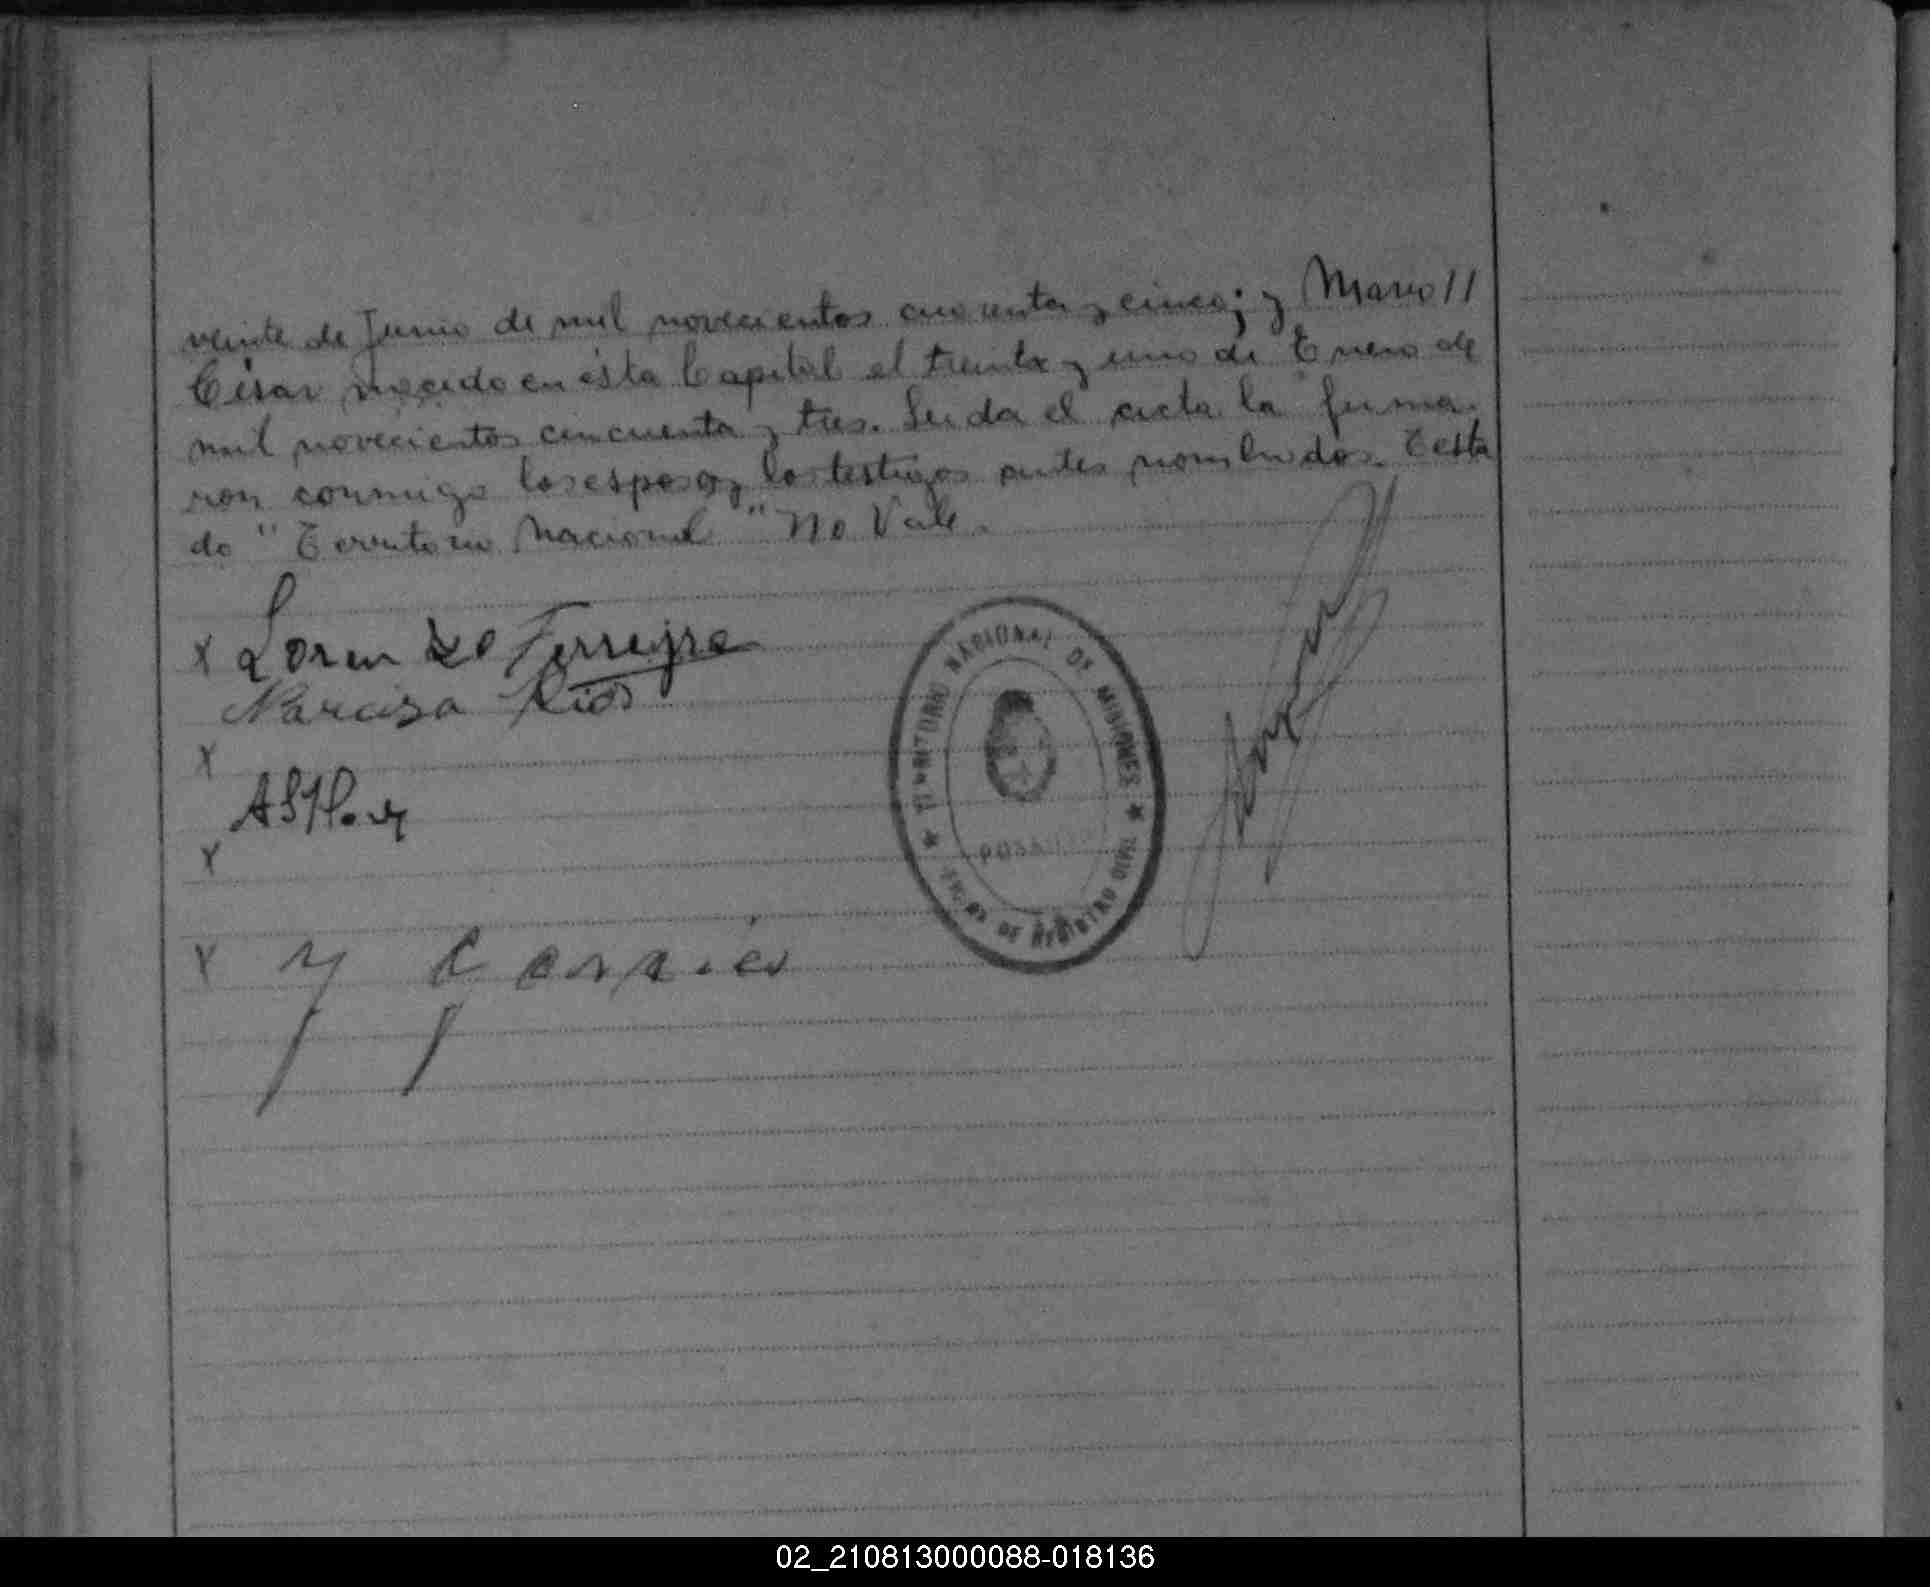 veinte de Junio de mil novecientos cuarenta y cinco; y Mario //
César nacido en ésta Capital el treinta y uno de Enero de
mil novecientos cincuenta y tres. Leida el acta la firma-
ron conmigo los esposos y los testigos antes nombrados. Testa
do "Territorio Nacional" No Vale.
x Lorenzo Ferreyra
Narcisa Rios
x
x
x
TERRITORIO NACIONAL DE MISIONES
POSADAS
DE REGISTRO CIVIL
02_210813000088-018136